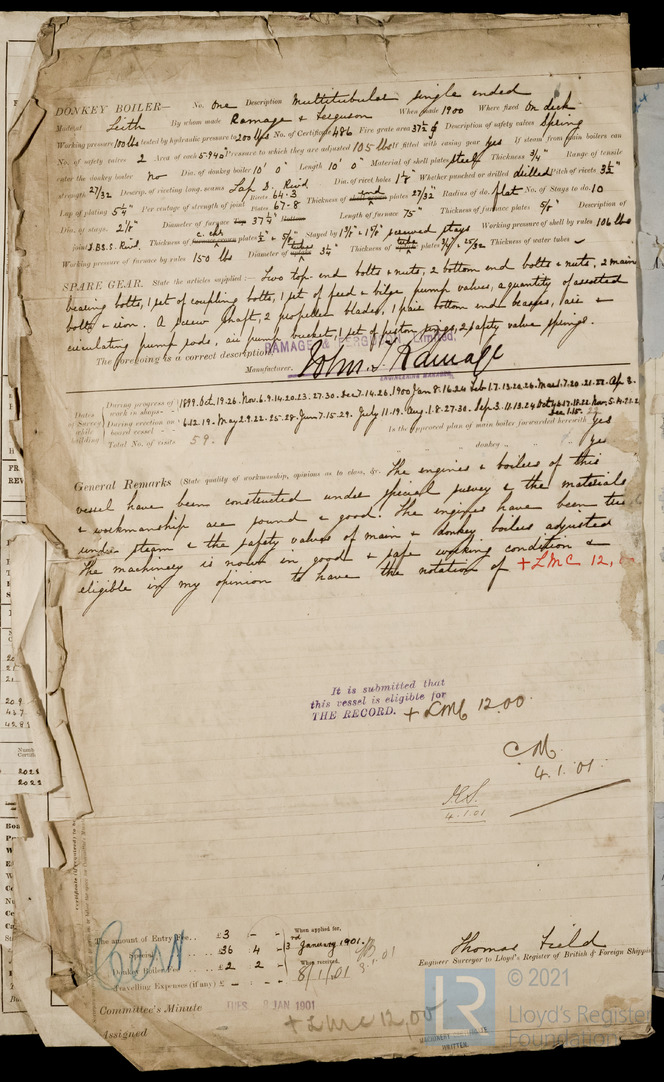 DONKEY BOILER— No. One Description Multitubular single ended
Made at Leith By whom made Ramage & Ferguson When made 1900 Where fixed On deck
Working pressure 100 lbs tested by hydraulic pressure to 200 lbs No. of Certificate 486 Fire grate area 37½ ft Description of safety valves Spring
No. of safety valves 2 Area of each 5.940" Pressure to which they are adjusted 105 lbs If fitted with easing gear yes If steam from main boilers can
enter the donkey boiler no Dia. of donkey boiler 10' 0" Length 10' 0" Material of shell plates steel Thickness ¾" Range of tensile
strength 27/32 Descrip. of riveting long. seams Lap D. Rivd Dia. of rivet holes 1⅛" Whether punched or drilled drilled Pitch of rivets 3½"
Lap of plating 5¼" Per centage of strength of joint Rivets 64.3 Plates 67.8 Thickness of end plates 27/32 Radius of do. flat No. of Stays to do. 10
Dia. of stays. 2⅛" Diameter of furnace 37¼" Length of furnace 75" Thickness of furnace plates 5/8" Description of
joint D.B.S.S. Rivd. Thickness of c. chr plates Stayed by 1⅜" & 1⅝" screwed stays Working pressure of shell by rules 106 lbs
Working pressure of furnace by rules 150 lbs Diameter of tubes 3¼" Thickness of tube plates Thickness of water tubes –
SPARE GEAR. State the articles supplied:— Two top end bolts & nuts, 2 bottom end bolts & nuts, 2 main
bearing bolts, 1 set of coupling bolts, 1 set of feed & bilge pump valves, a quantity of assorted
bolts & iron. A screw shaft, 2 propeller blades, 1 pair bottom end brasses, air &
circulating pump rods, air pump bucket, 1 set of piston rings, 2 safety valve springs.
The foregoing is a correct description,
RAMAGE & FERGUSON, Limited.
Manufacturer. John T Ramage
ENGINEERING MANAGER.
Dates of Survey while building
During progress of work in shops- 1899. Oct. 19. 26. Nov. 6. 9. 14. 20. 23. 27. 30. Dec. 7. 14. 26. 1900 Jan 8. 16. 24 Feb 1. 7. 13. 20. 26. Mar 1. 7. 20. 21. 28. Ap. 3.
During erection on board vessel- 6. 12. 19. May 2. 9. 22. 25. 28. June 7. 15. 29. July 11. 19. Aug. 1. 8. 27. 30. Sep. 3. 11. 13. 24 Oct 4. 6. 17. 18. 22. Nov. 5. 14. 21. 2
Dec 1. 15.
Total No. of visits 59.
Is the approved plan of main boiler forwarded herewith yes
" " " donkey " " " yes
General Remarks (State quality of workmanship, opinions as to class, &c. The engines & boilers of this
vessel have been constructed under special survey & the materials
& workmanship are sound & good. The engines have been tried
under steam & the safety valves of main & donkey boilers adjusted
The machinery is now in good & safe working condition &
eligible in my opinion to have the notation of + LMC 12,
It is submitted that
this vessel is eligible for
THE RECORD. + LMC 12.00.
CM.
4.1.01.
4.1.01
The amount of Entry Fee.. £3 : - : - When applied for,
Special £36 : 4 : - 3rd January 1901.
Donkey Boiler Fee £2 : 2 : - When received,
8/1/01 8.1.01
Travelling Expenses (if any) £ - : - : -
Thomas Field
Engineer Surveyor to Lloyd's Register of British & Foreign Shippin
Committee's Minute TUES. 8 JAN 1901
Assigned + LMC 12,00
MACHINERY
WRITTEN.
© 2021
Lloyd's Register
Foundation
LR
FR
REV
20.9
43.7
Numb
Certific
2021
2022